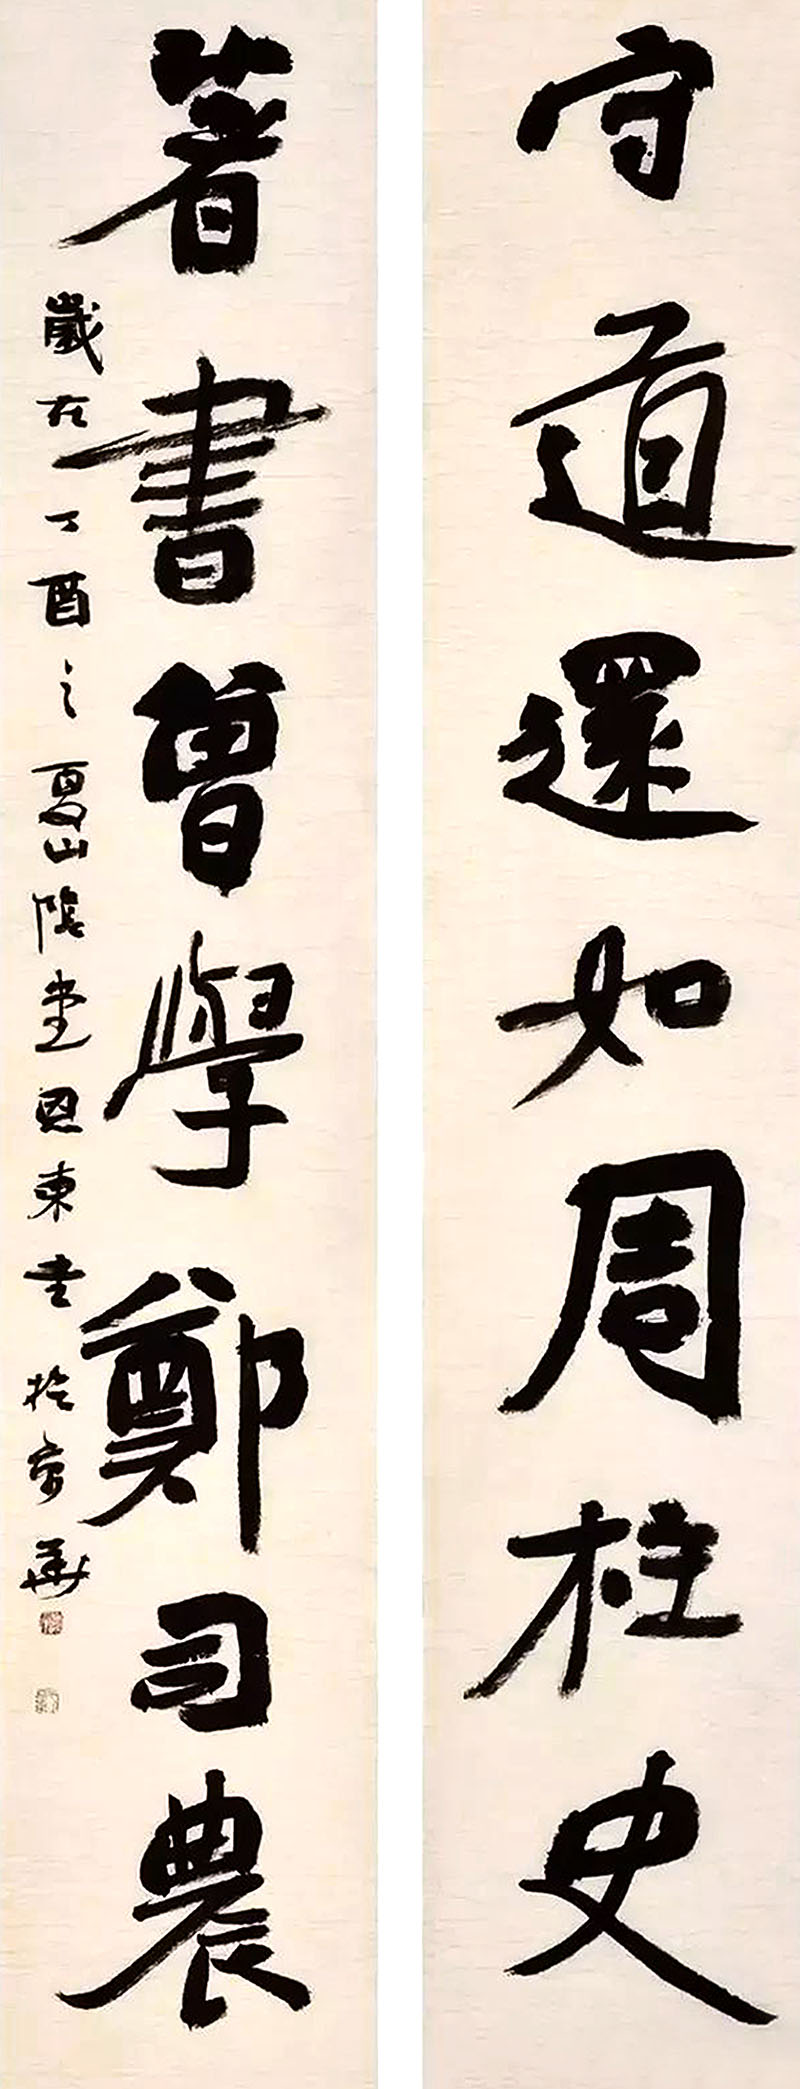 守道還如周柱史
著書曾學鄭司農
歲在丁酉之夏山陰堂恩東書於京華